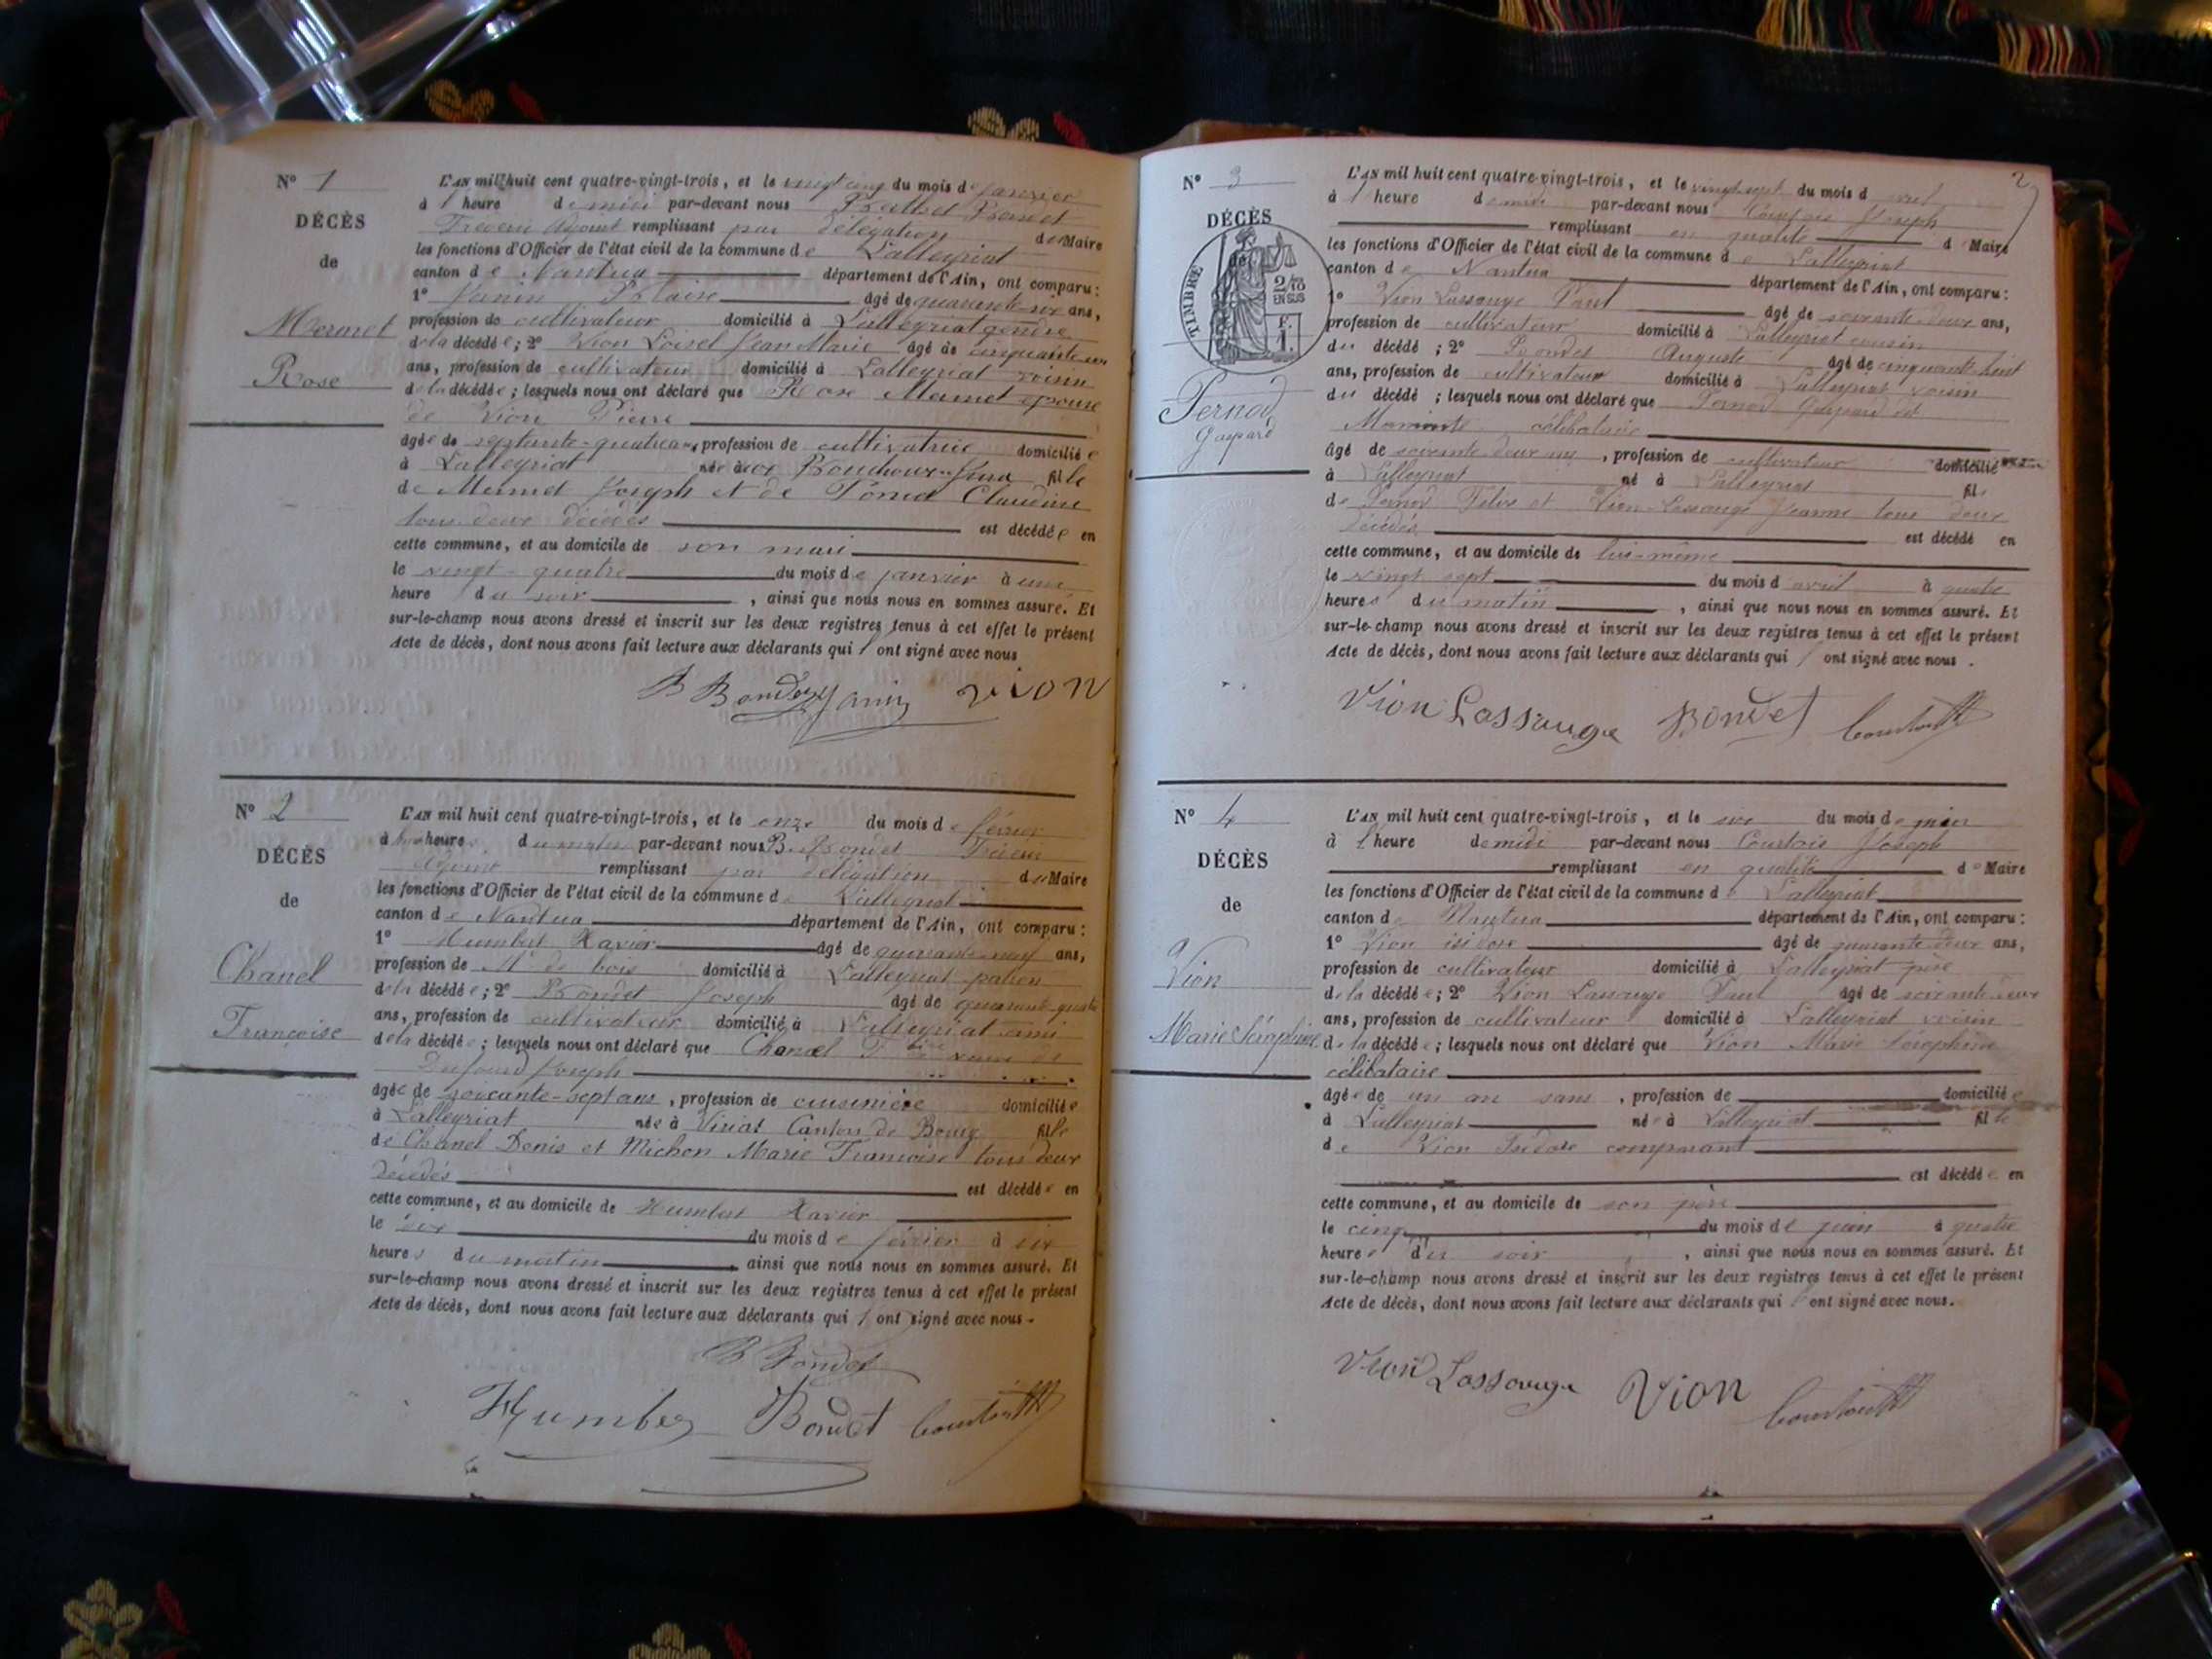 N° 1
DÉCÈS
de
Mermet
Rose
L'AN mil huit cent quatre-vingt-trois, et le vingt cinq du mois de janvier
à l'heure de midi par-devant nous Bondet
remplissant par délégation du Maire
les fonctions d'Officier de l'état civil de la commune de Lalleyriat
canton de Nantua département de l'Ain, ont comparu :
1° Janin âgé de quarante-six ans,
profession de cultivateur domicilié à Lalleyriat gendre
de la décédée ; 2° Vion Loisel Jean Marie âgé de cinquante un
ans, profession de cultivateur domicilié à Lalleyriat voisin
de la décédée ; lesquels nous ont déclaré que Rose Mermet épouse
de Vion Pierre
âgée de septante-quatre ans, profession de cultivatrice domiciliée
à Lalleyriat née aux Bouchoux Jura fille
de Mermet Joseph et de Claudine
tous deux décédés est décédée en
cette commune, et au domicile de son mari
le vingt-quatre du mois de janvier à une
heure du soir, ainsi que nous nous en sommes assuré. Et
sur-le-champ nous avons dressé et inscrit sur les deux registres tenus à cet effet le présent
Acte de décès, dont nous avons fait lecture aux déclarants qui l'ont signé avec nous
B Bondet Janin vion
N° 2
DÉCÈS
de
Chanel
Françoise
L'AN mil huit cent quatre-vingt-trois, et le onze du mois de février
à heures du matin par-devant nous B. Bondet
Adjoint remplissant par délégation du Maire
les fonctions d'Officier de l'état civil de la commune de Lalleyriat
canton de Nantua département de l'Ain, ont comparu :
1° Humbert Xavier âgé de quarante-neuf ans,
profession de Md de bois domicilié à Lalleyriat patron
de la décédée ; 2° Bondet Joseph âgé de quarante-quatre
ans, profession de cultivateur domicilié à Lalleyriat ami
de la décédée ; lesquels nous ont déclaré que Chanel veuve de
Joseph
âgée de soixante-sept ans, profession de cuisinière domiciliée
à Lalleyriat née à Viriat Canton de Bourg fille
de Chanel Denis et Michon Marie Françoise tous deux
décédés est décédée en
cette commune, et au domicile de Humbert Xavier
le du mois de février à six
heures du matin ainsi que nous nous en sommes assuré. Et
sur-le-champ nous avons dressé et inscrit sur les deux registres tenus à cet effet le présent
Acte de décès, dont nous avons fait lecture aux déclarants qui l'ont signé avec nous.
B Bondet
Humbert Bondet Courtois
2
N° 3
DÉCÈS
de
TIMBRE
2/10
EN SUS
F.
1.
Pernod
Gaspard
L'AN mil huit cent quatre-vingt-trois, et le vingt sept du mois d'avril
à l'heure de midi par-devant nous Courtois Joseph
remplissant en qualité de Maire
les fonctions d'Officier de l'état civil de la commune de Lalleyriat
canton de Nantua département de l'Ain, ont comparu :
1° Vion Lassauge Paul âgé de soixante deux ans,
profession de cultivateur domicilié à Lalleyriat cousin
du décédé ; 2° Bondet Auguste âgé de cinquante huit
ans, profession de cultivateur domicilié à Lalleyriat voisin
du décédé ; lesquels nous ont déclaré que Pernod Gaspard dit
célibataire
âgé de soixante deux ans, profession de cultivateur domicilié
à Lalleyriat né à Lalleyriat fils
de Pernod Félix et Vion-Lassauge Jeanne tous deux
décédés est décédé en
cette commune, et au domicile de lui-même
le vingt sept du mois d'avril à quatre
heures du matin, ainsi que nous nous en sommes assuré. Et
sur-le-champ nous avons dressé et inscrit sur les deux registres tenus à cet effet le présent
Acte de décès, dont nous avons fait lecture aux déclarants qui l'ont signé avec nous.
Vion Lassauge Bondet Courtois
N° 4
DÉCÈS
de
Vion
Marie Séraphine
L'AN mil huit cent quatre-vingt-trois, et le six du mois de juin
à l'heure de midi par-devant nous Courtois Joseph
remplissant en qualité de Maire
les fonctions d'Officier de l'état civil de la commune de Lalleyriat
canton de Nantua département de l'Ain, ont comparu :
1° Vion isidore âgé de quarante deux ans,
profession de cultivateur domicilié à Lalleyriat père
de la décédée ; 2° Vion Lassauge Paul âgé de soixante deux
ans, profession de cultivateur domicilié à Lalleyriat voisin
de la décédée ; lesquels nous ont déclaré que Vion Marie Séraphine
célibataire
âgée de un an sans, profession de domiciliée
à Lalleyriat née à Lalleyriat fille
de Vion Isidore comparant
est décédée en
cette commune, et au domicile de son père
le cinq du mois de juin à quatre
heures du soir, ainsi que nous nous en sommes assuré. Et
sur-le-champ nous avons dressé et inscrit sur les deux registres tenus à cet effet le présent
Acte de décès, dont nous avons fait lecture aux déclarants qui l'ont signé avec nous.
Vion Lassauge Vion Courtois